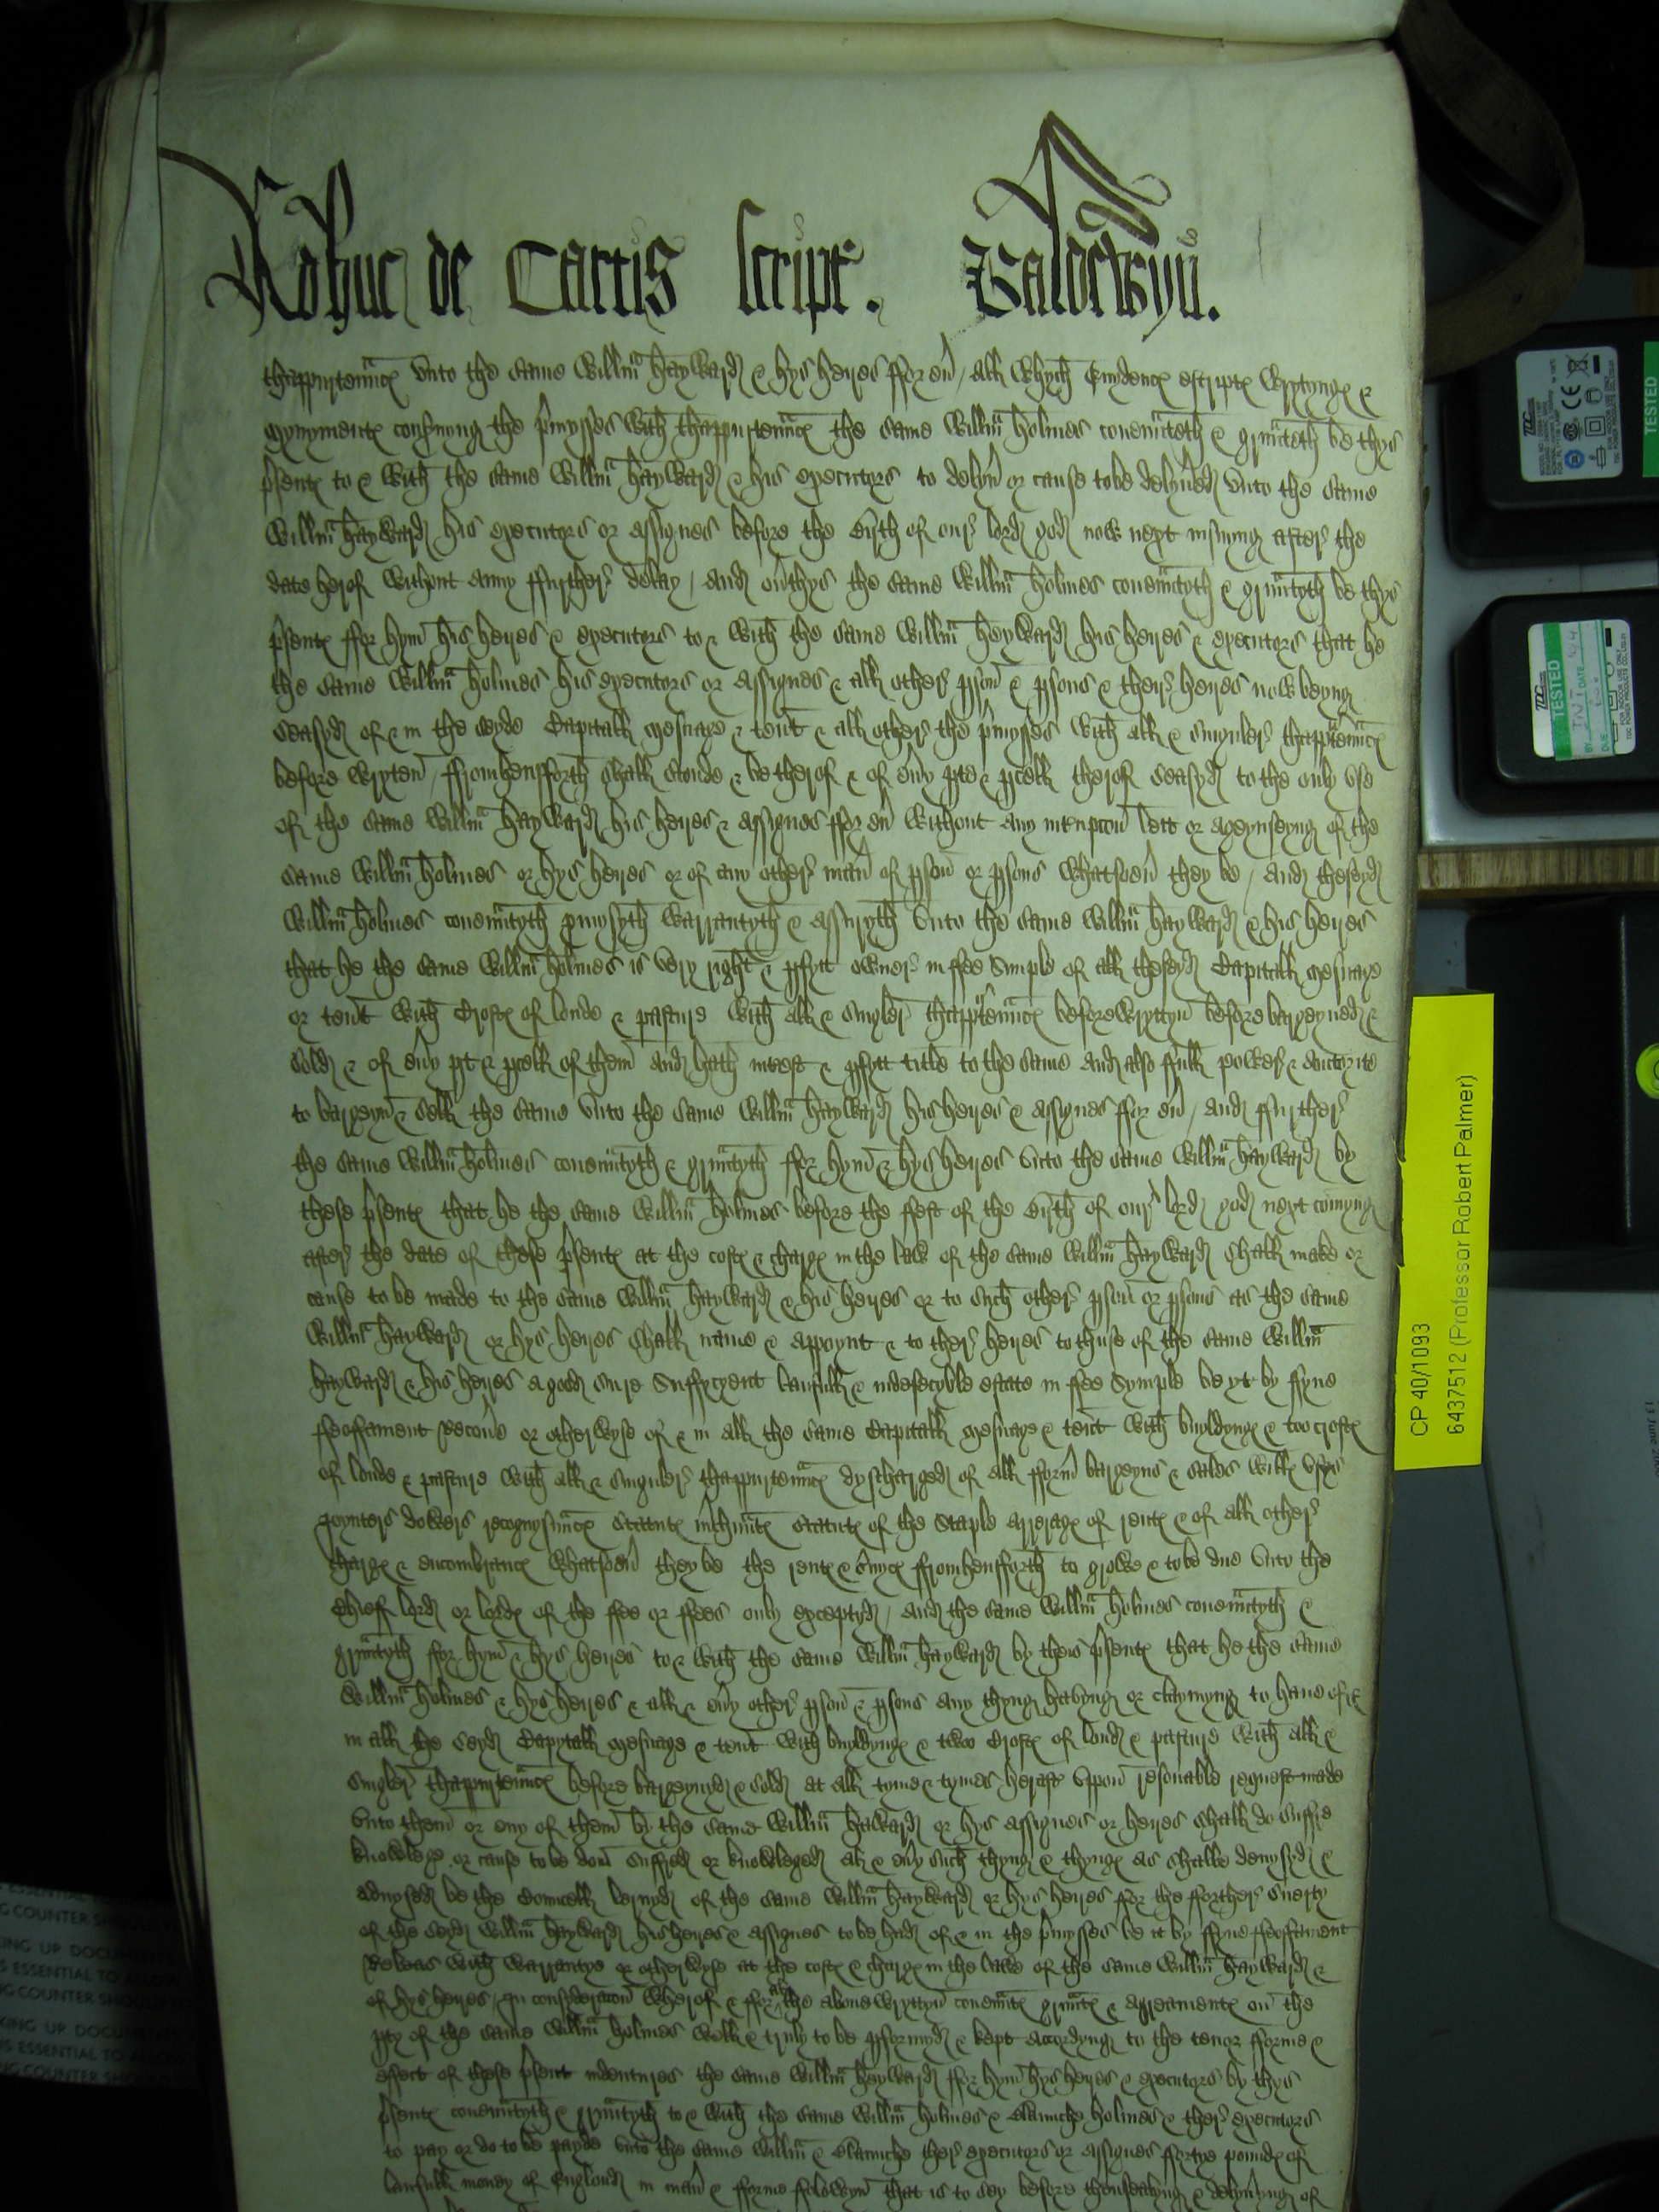 Adhuc de Cartis script. Baldewyn.
thappurtenncs unto the same Willm Hayward & hys heyres ffor eu / all whych Evydencs escripts wrytyngs &
mynyments consnyng the pmysses with thappurtenncs the same Willm Holmes covennteth & grnteth be thys
psents to & with the same Willm Hayward & his executors to delyu or cause to be delyued unto the same
Willm Hayward his executors or assignes before the Birth of our lord god now next insuyng after the
date herof without anny ffurther delay / and outhys the same Willm Holmes covenntyth & grntyth be thys
psents ffor hym his heyres & executors to & with the same Willm Heyward his heyres & executors that he
the same Willm Holmes his executors or assignes & all other pson & psons & ther heyres now beyng
Seasyd of & in the seyde Capitall mesuage & tent & all other the pmysses with all & singuler thapptenncs
before wryten ffromhensfforth shall stonde & be therof & of euy pte & pcell therof seasyd to the only use
of the same Willm Hayward his heyres & assignes ffor eu without any intrupcon lett or ageynseyng of the
same Willm Holmes or hys heyres or of any other man of pson or psons whatsoeu they be / and theseyd
Willm Holmes covenntyth pmysyth warrantyth & assuryth unto the same Willm Hayward & his heyres
that he the same Willm Holmes is very right & pfytt owner in ffee Simple of all theseyd Capitall mesuage
or tent with Crofts of londe & pasture with all & singler thapptenncs beforewryttyn before bargeyned &
sold & of euy pt & pcell of them and hath intrest & pfytt title to the same and also ffull power & auctorite
to bargeyn & sell the same unto the same Willm Hayward his heyres & assignes ffor eu / and ffurther
the same Willm Holmes covenntyth & grntyth ffor hym & hys heyres unto the same Willm Hayward by
these psents that he the same Willm Holmes before the ffest of the Birth of our lord god next comyng
after the date of these psents at the costs & chargs in the law of the same Willm Hayward shall make or
cause to be made to the same Willm Hayward & his heyres or to such other pson or psons as the same
Willm Hayward or hys heyres shall name & appoynt & to ther heyres to thuse of the same Willm
Hayward & his heyres a good sure Suffycyent laufull & indefecyble estate in ffee Symple be yt by ffyne
ffeoffament Recoue or otherwyse of & in all the same Capitall mesuage & tent with buyldyngs & too crofts
of londe & pasture with all & singuler thappurtenncs dyscharged of all fform bargeyns & sales wills uses
joynters dowers recognysuncs statuts mchnts statuts of the Staple arrerags of rents & of all other
chargs & encombrancs whatsoeu they be the rents & suycs ffromhensfforth to growe & to be due unto the
Chieff lord or lords of the ffee or ffees only exceptyd / and the same Willm Holmes covenntyth &
grntyth ffor hym & hys heyres to & with the same Willm Hayward by theis psents that he the same
Willm Holmes & hys heyres & all & euy other pson & psons any thyng havyng or claymyng to have of &
in all the seyd Capytall mesuage & tent with buyldyngs & twoo Crofts of lond & pasture with all &
singler thappurtenncs before bargeynyd & sold at all tyme & tymes heraft uppon resonable request made
unto them or eny of them by the same Willm Haward or hys assignes or heyres shall do suffre
knowlege or cause to be don suffred or knowleged all & euy such thyng & thyngs as shalbe devysyd &
advysed be the Councell lernyd of the same Willm Hayward or hys heyres ffor the fforther suerty
of the seyd Willm Hayward his heyres & assignes to be had of & in the pmysses be it by ffyne ffeoffament
Releas with warrantye or otherwyse at the costs & chargs in the lawe of the same Willm Hayward &
of hys heyres / In consideracon wherof & ffor all the abovewryttyn covennts grnts & agreaments on the
pty of the same Willm Holmes well & truly to be pformyd & kept accordyng to the tenor fforme &
effect of these psent indentures the same Willm Heyward ffor hym hys heyres & executors by thys
psents covenntyth & grntyth to & with the same Willm Holmes & Blaunche Holmes & ther executors
to pay or do to be payde unto the same Willm & Blaunche ther executors or assignes ffortye pounds of
laufull money of Englond in man & fforme ffolowyng that is to sey before thensealyng & delyuyng of
CP 40/1093
6437512 (Professor Robert Palmer)
TESTED